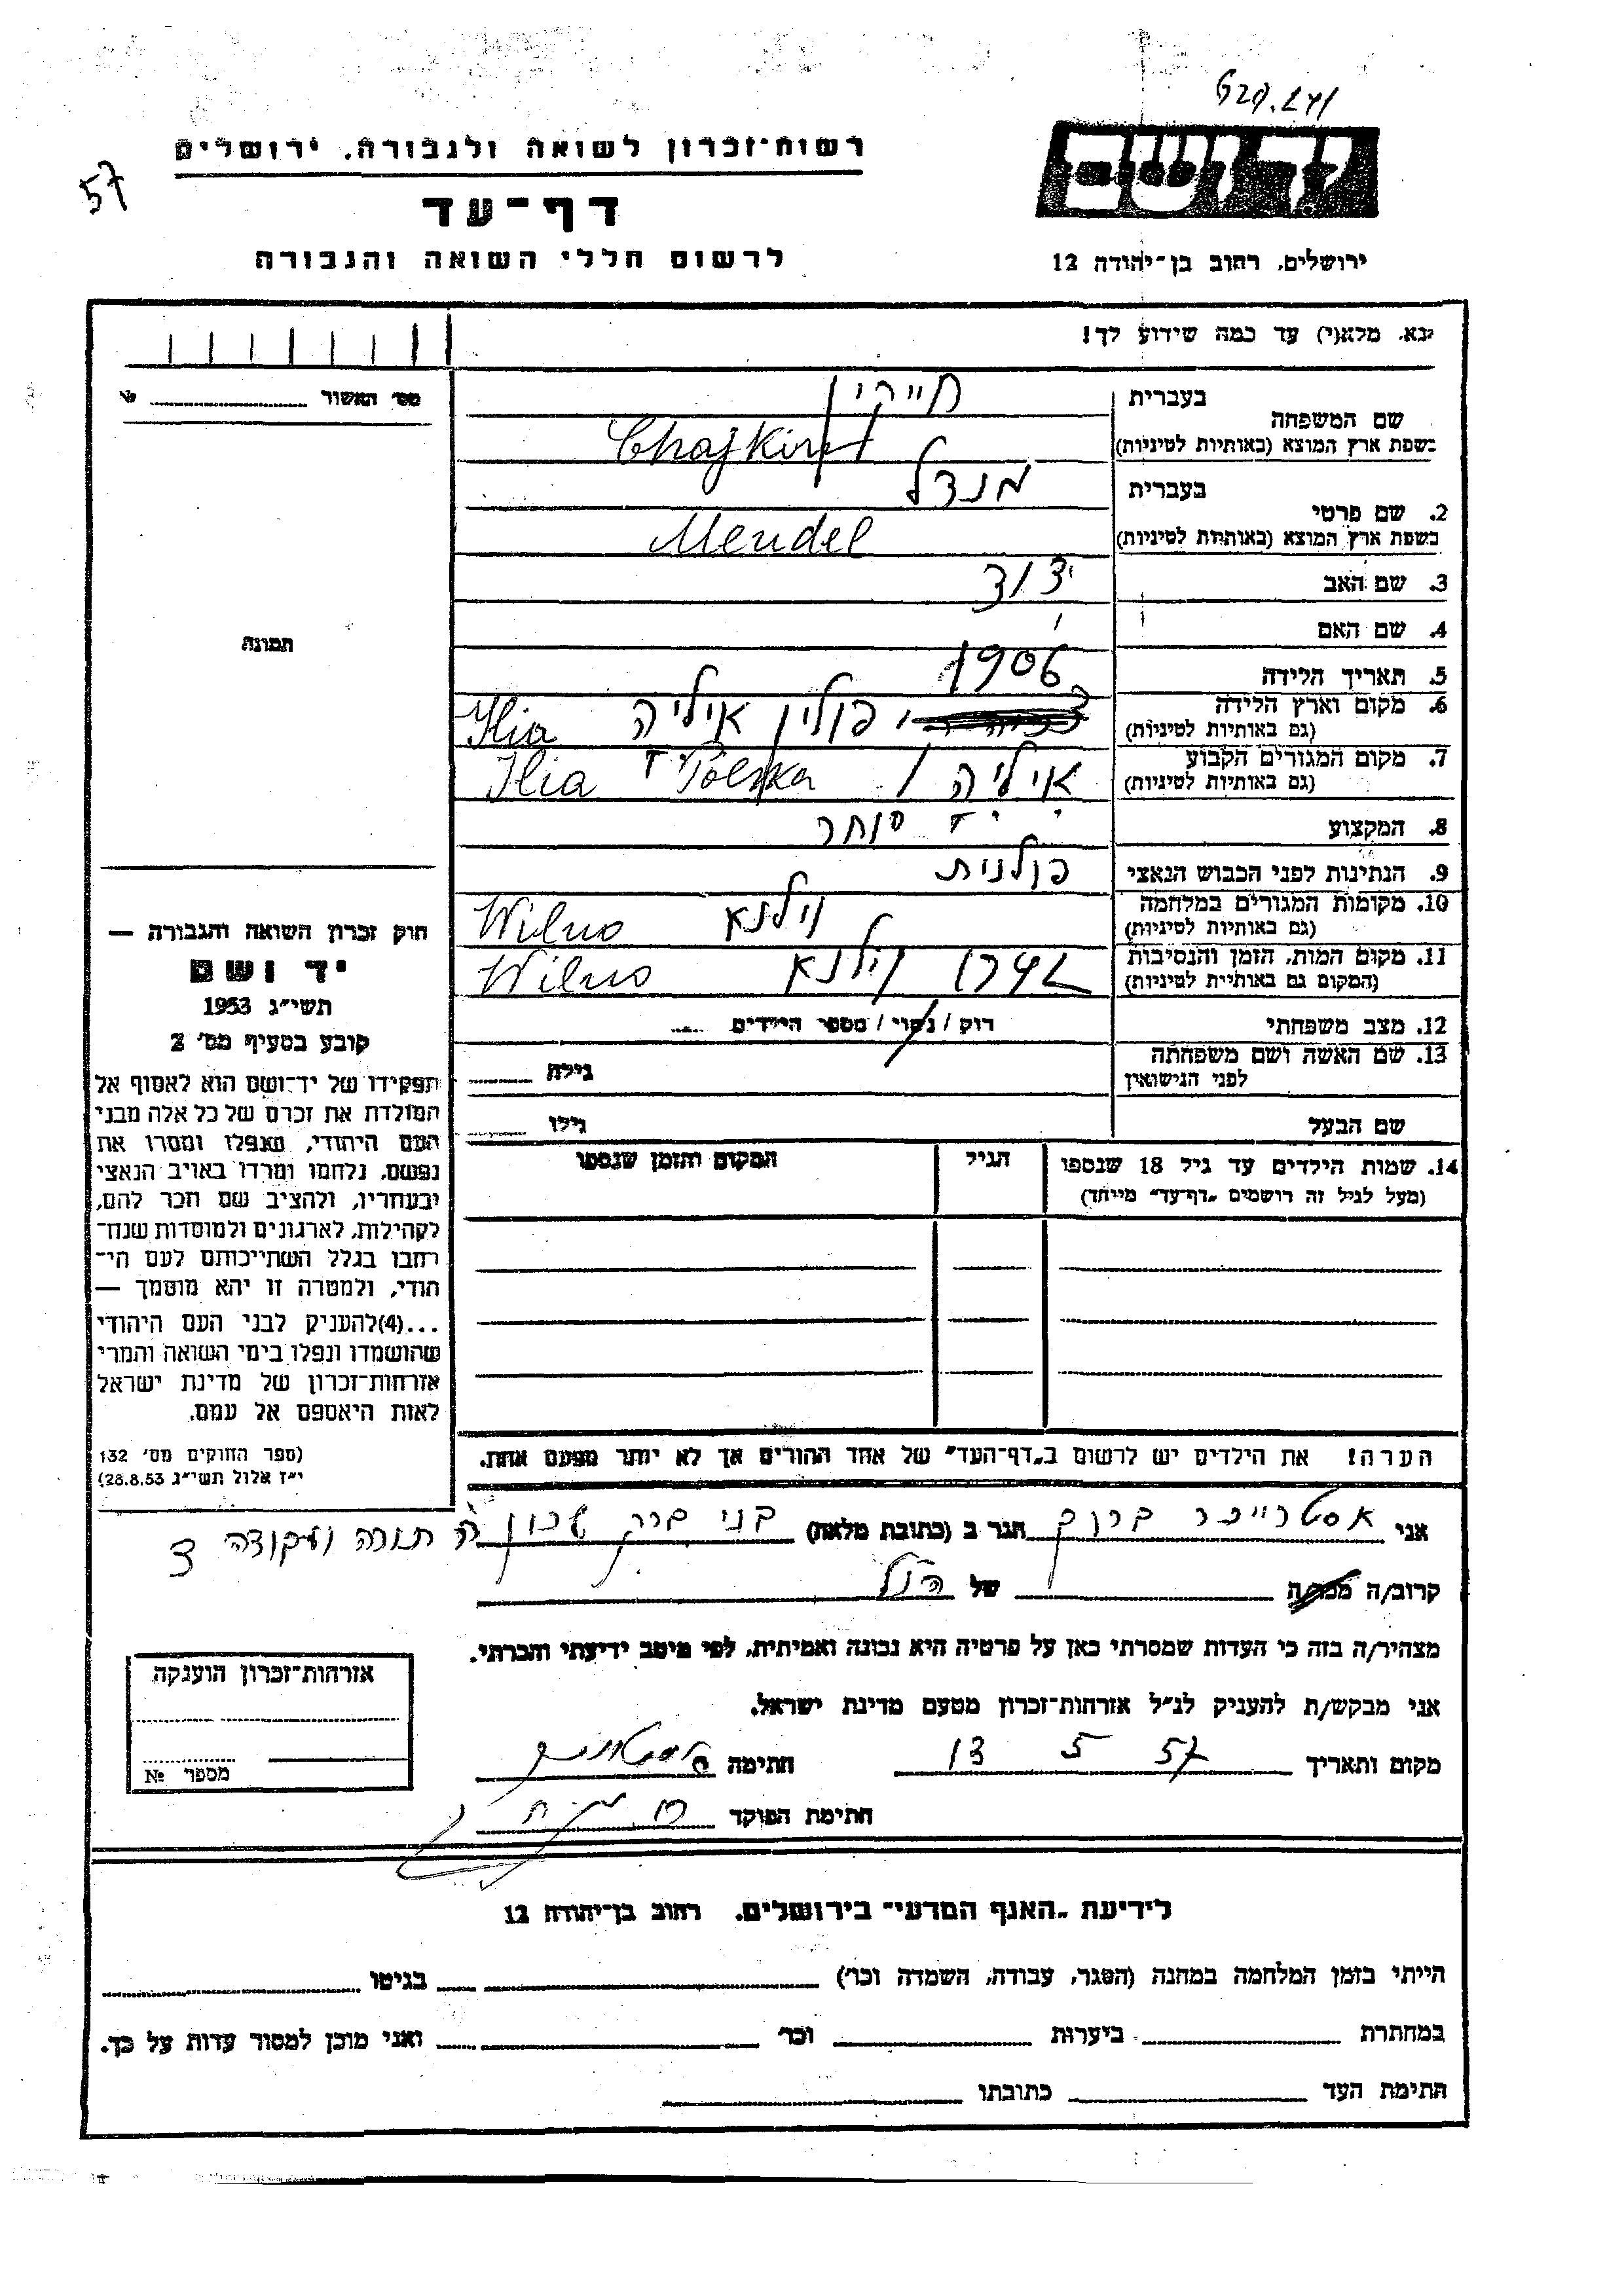 629.241
57
רשות-זכרון לשואה ולגבורה, ירושלים
דף-עד
לרשום חללי השואה והגבורה
יד ושם
ירושלים, רחוב בן-יהודה 12
נא. מלא(י) עד כמה שידוע לך!
מס' האשור № 
שם המשפחה
בעברית חייקין
בשפת ארץ המוצא (באותיות לטיניות) Chajkin
2. שם פרטי
בעברית מנדל
בשפת ארץ המוצא (באותיות לטיניות) Mendel
3. שם האב
4. שם האם
5. תאריך הלידה 1906
6. מקום וארץ הלידה
(גם באותיות לטיניות) פולין איליה Ilia
7. מקום המגורים הקבוע
(גם באותיות לטיניות) איליה Polska Ilia
8. המקצוע סוחר
9. הנתינות לפני הכבוש הנאצי פולנית
10. מקומות המגורים במלחמה
(גם באותיות לטיניות) וילנא Wilno
11. מקום המות, הזמן והנסיבות
(המקום גם באותיות לטיניות) וילנא Wilno
12. מצב משפחתי רווק / נשוי / מספר הילדים
13. שם האשה ושם משפחתה
לפני הנישואין גילה
שם הבעל גילו
14. שמות הילדים עד גיל 18 שנספו
(מעל לגיל זה רושמים "דף-עד" מיוחד)
הגיל
המקום והזמן שנספו
הערה! את הילדים יש לרשום ב"דף-העד" של אחד ההורים אך לא יותר מפעם אחת.
תמונה
חוק זכרון השואה והגבורה —
יד ושם
תשי"ג 1953
קובע בסעיף מס' 2
תפקידו של יד-ושם הוא לאסוף אל
המולדת את זכרם של כל אלה מבני
העם היהודי, שנפלו ומסרו את
נפשם, נלחמו ומרדו באויב הנאצי
ובעוזריו, ולהציב שם וזכר להם,
לקהילות, לארגונים ולמוסדות שנח-
רבו בגלל השתייכותם לעם הי-
הודי, ולמטרה זו יהא מוסמך —
...(4)להעניק לבני העם היהודי
שהושמדו ונפלו בימי השואה והמרי
אזרחות-זכרון של מדינת ישראל
לאות היאספם אל עמם.
(ספר החוקים מס' 132
י"ז אלול תשי"ג 28.8.53)
אני ברוך הגר ב (כתובת מלאה) בני ברק שכון
קרוב/ה מכר/ה של הנ"ל
מצהיר/ה בזה כי העדות שמסרתי כאן על פרטיה היא נכונה ואמיתית, לפי מיטב ידיעתי והכרתי.
אני מבקש/ת להעניק לנ"ל אזרחות-זכרון מטעם מדינת ישראל.
מקום ותאריך 13 5 57 חתימה
חתימת הפוקד
אזרחות-זכרון הוענקה
מספר №
לידיעת "האגף המדעי" בירושלים, רחוב בן-יהודה 12
הייתי בזמן המלחמה במחנה (הסגר, עבודה, השמדה וכו') בגיטו
במחתרת ביערות וכו' ואני מוכן למסור עדות על כך.
חתימת העד כתובתו